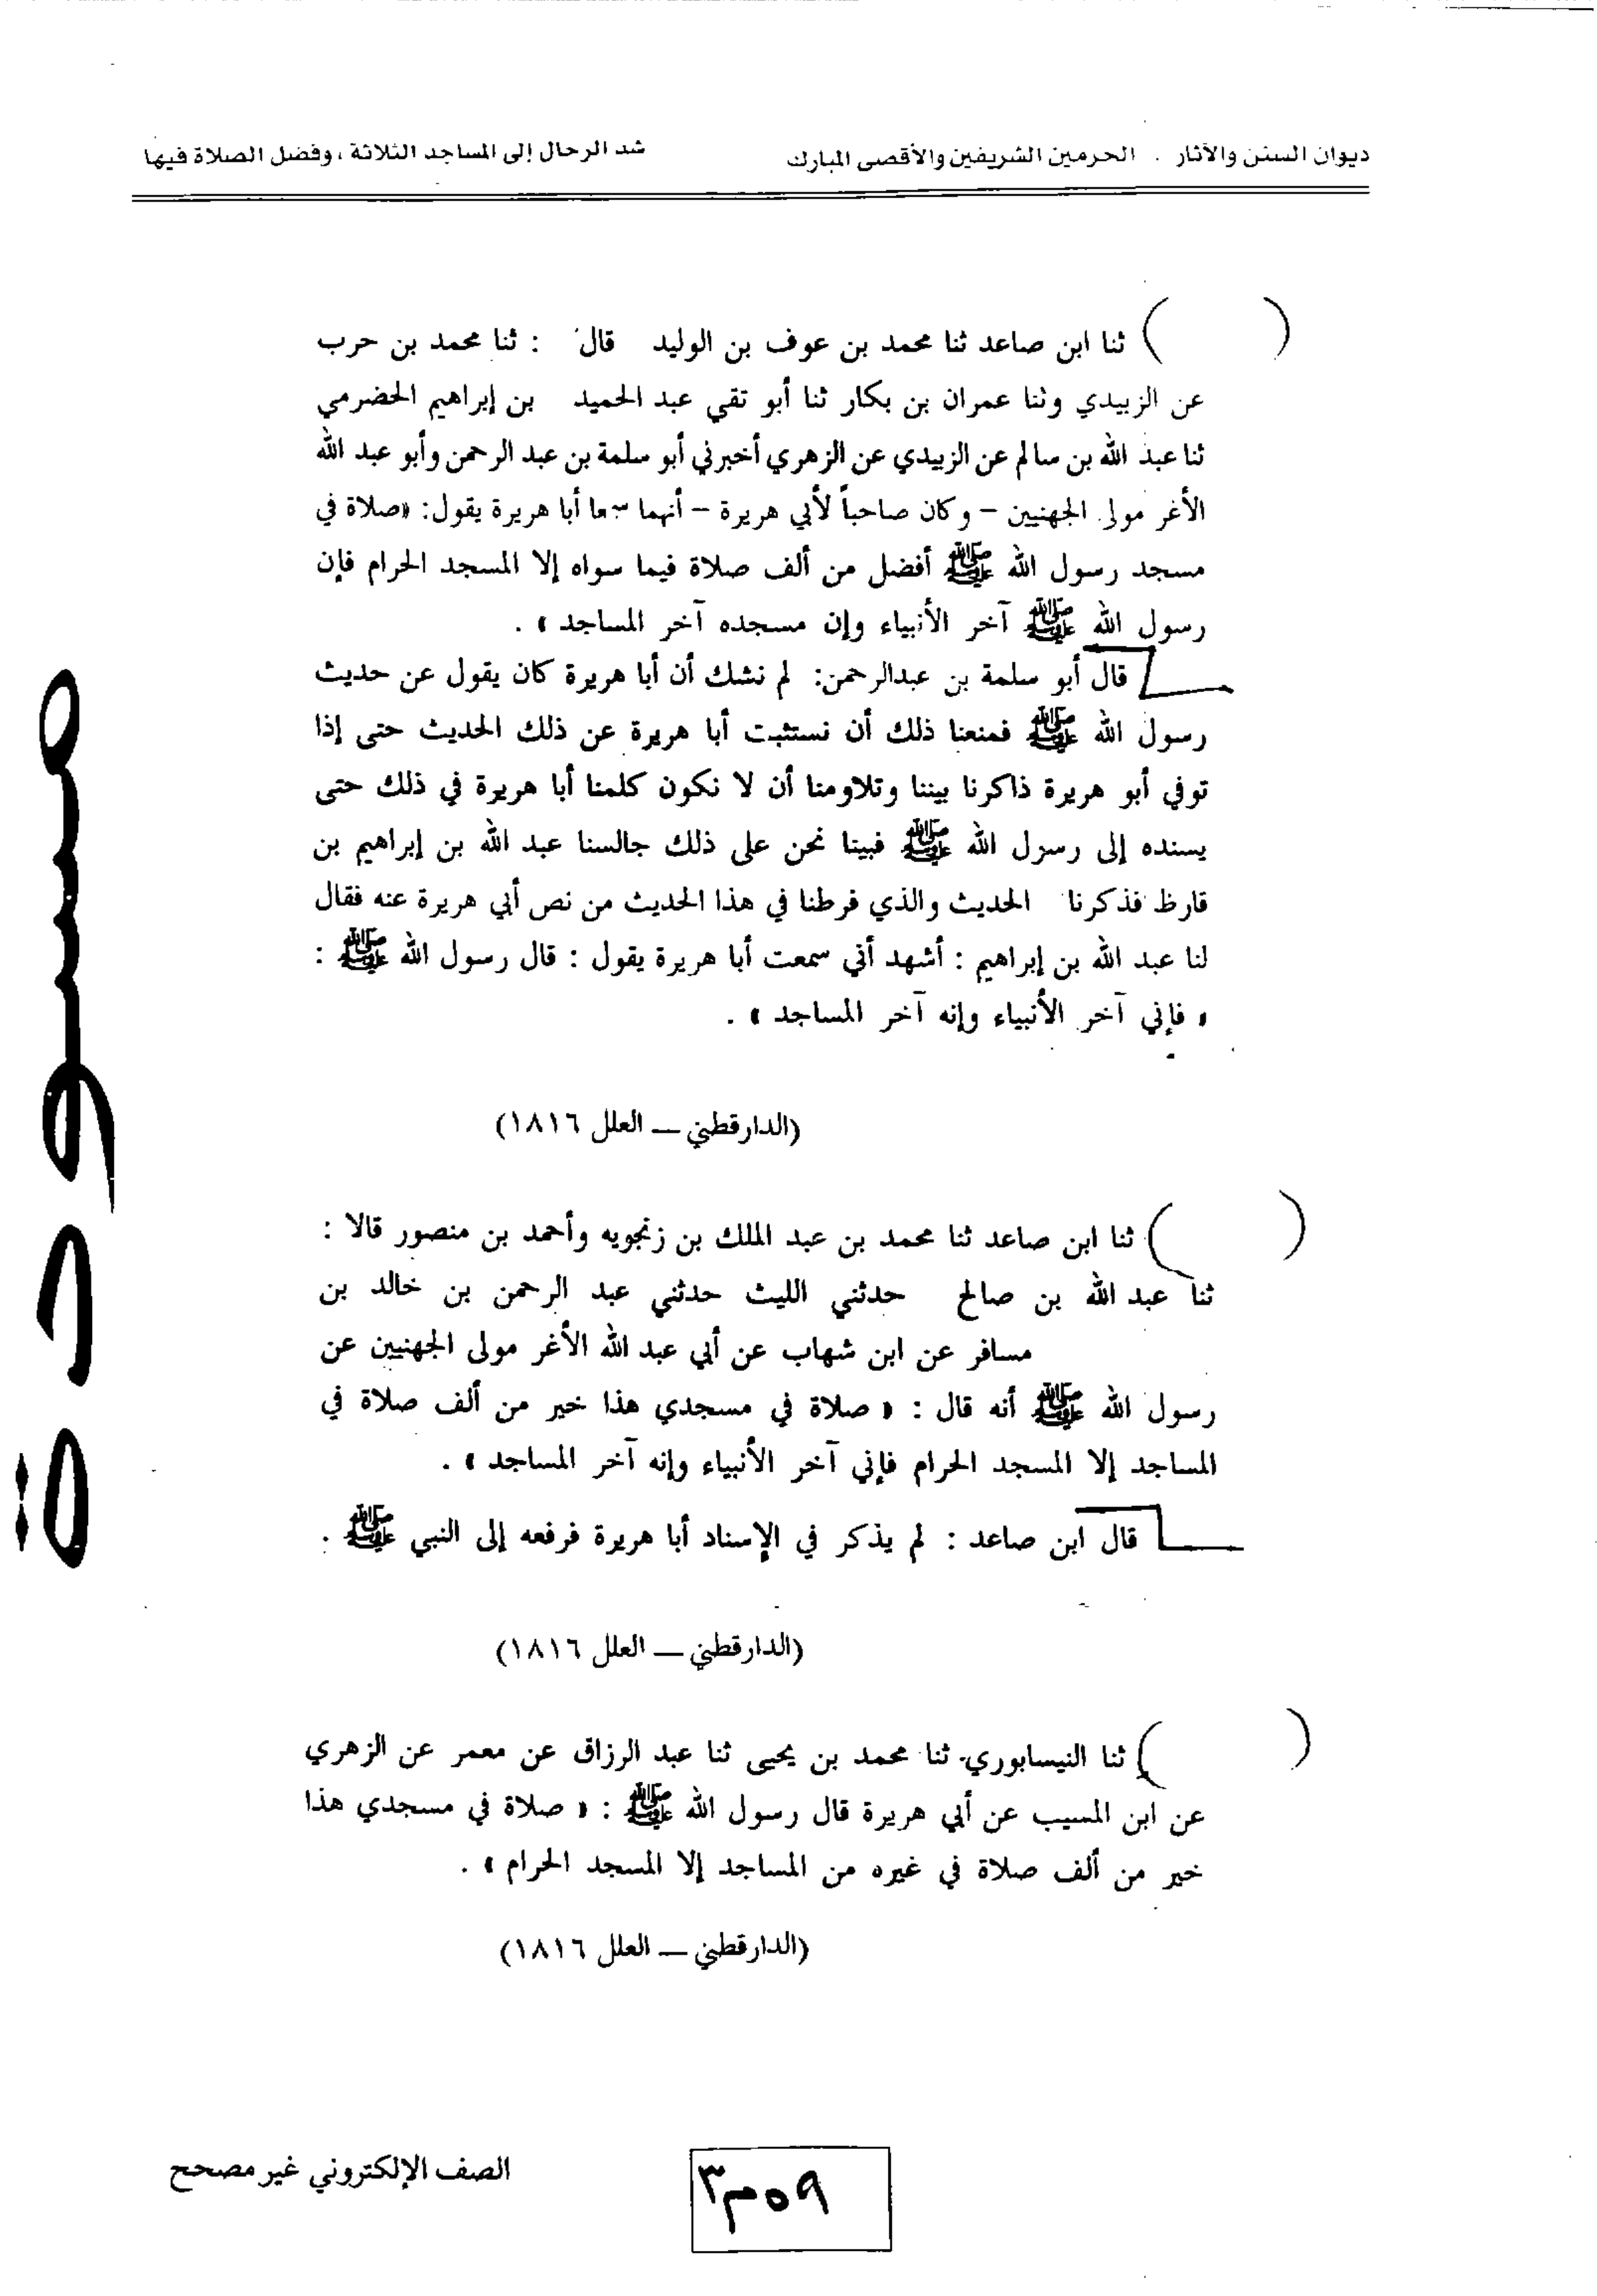 ديوان السنن والآثار . الحرمين الشريفين والأقصى المبارك شد الرحال إلى المساجد الثلاثة ، وفضل الصلاة فيها
( ) ثنا ابن صاعد ثنا محمد بن عوف بن الوليد قال : ثنا محمد بن حرب
عن الزبيدي وثنا عمران بن بكار ثنا أبو تقي عبد الحميد بن إبراهيم الحضرمي
ثنا عبد الله بن سالم عن الزبيدي عن الزهري أخبرني أبو سلمة بن عبد الرحمن وأبو عبد الله
الأغر مولى الجهنيين – وكان صاحباً لأبي هريرة – أنهما سمعا أبا هريرة يقول: «صلاة في
مسجد رسول الله ﷺ أفضل من ألف صلاة فيما سواه إلا المسجد الحرام فإن
رسول الله ﷺ آخر الأنبياء وإن مسجده آخر المساجد » .
قال أبو سلمة بن عبدالرحمن: لم نشك أن أبا هريرة كان يقول عن حديث
رسول الله ﷺ فمنعنا ذلك أن نستثبت أبا هريرة عن ذلك الحديث حتى إذا
توفي أبو هريرة ذاكرنا بيننا وتلاومنا أن لا نكون كلمنا أبا هريرة في ذلك حتى
يسنده إلى رسول الله ﷺ فبينا نحن على ذلك جالسنا عبد الله بن إبراهيم بن
قارظ فذكرنا الحديث والذي فرطنا في هذا الحديث من نص أبي هريرة عنه فقال
لنا عبد الله بن إبراهيم : أشهد أني سمعت أبا هريرة يقول : قال رسول الله ﷺ :
« فإني آخر الأنبياء وإنه آخر المساجد » .
(الدارقطني — العلل ١٨١٦)
( ) ثنا ابن صاعد ثنا محمد بن عبد الملك بن زنجويه وأحمد بن منصور قالا :
ثنا عبد الله بن صالح حدثني الليث حدثني عبد الرحمن بن خالد بن
مسافر عن ابن شهاب عن أبي عبد الله الأغر مولى الجهنيين عن
رسول الله ﷺ أنه قال : « صلاة في مسجدي هذا خير من ألف صلاة في
المساجد إلا المسجد الحرام فإني آخر الأنبياء وإنه آخر المساجد » .
قال ابن صاعد : لم يذكر في الإسناد أبا هريرة فرفعه إلى النبي ﷺ .
(الدارقطني — العلل ١٨١٦)
( ) ثنا النيسابوري ثنا محمد بن يحيى ثنا عبد الرزاق عن معمر عن الزهري
عن ابن المسيب عن أبي هريرة قال رسول الله ﷺ : « صلاة في مسجدي هذا
خير من ألف صلاة في غيره من المساجد إلا المسجد الحرام » .
(الدارقطني — العلل ١٨١٦)
مسودة
الصف الإلكتروني غير مصحح